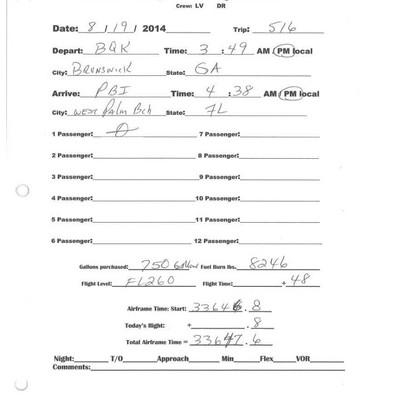 Crew: LV DR
Date: 8 / 19 / 2014 Trip: 516
Depart: BQK Time: 3 : 49 AM / PM local
City: Brunswick State: GA
Arrive: PBI Time: 4 : 38 AM / PM local
City: West Palm Bch State: FL
1 Passenger: 0 7 Passenger:
2 Passenger: 8 Passenger:
3 Passenger: 9 Passenger:
4 Passenger: 10 Passenger:
5 Passenger: 11 Passenger:
6 Passenger: 12 Passenger:
Gallons purchased: 750 Fuel Burn lbs. 8246
Flight Level: FL260 Flight Time: + 48
Airframe Time: Start: 33646 . 8
Today's flight: + . 8
Total Airframe Time = 33647 . 6
Night: T/O Approach Min Flex VOR
Comments: